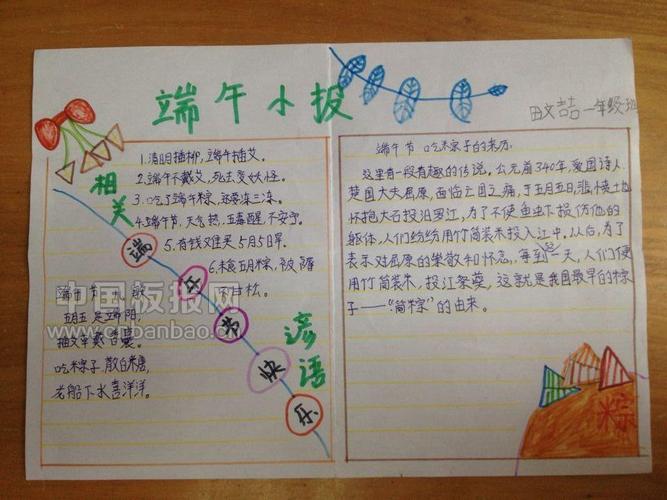 端午小报
田文喆 一年级 班
相关
谚语
1.清明插柳,端午插艾。
2.端午不戴艾,死去变妖怪。
3.吃了端午粽,还要冻三冻。
4.端午节,天气热,五毒醒,不安宁。
5.有钱难买5月5日旱。
6.未食五月粽,被
端午节快乐
端午节
五月五是端阳。
插艾草戴香囊。
吃粽子,散白糖,
龙船下水喜洋洋。
端午节吃粽子的来历:
这里有一段有趣的传说,公元前340年,爱国诗人
楚国大夫屈原,面临亡国之痛,于五月五日,悲愤土地
怀抱大石投汨罗江,为了不使鱼虫下损伤他的
躯体,人们纷纷用竹筒装米投入江中。从后,为了
表示对屈原的崇敬和怀念,每到这一天,人们便
用竹筒装米,投江祭奠,这就是我国最早的粽
子——“筒粽”的由来。
粽
中国板报网
www.cnbanbao.cn